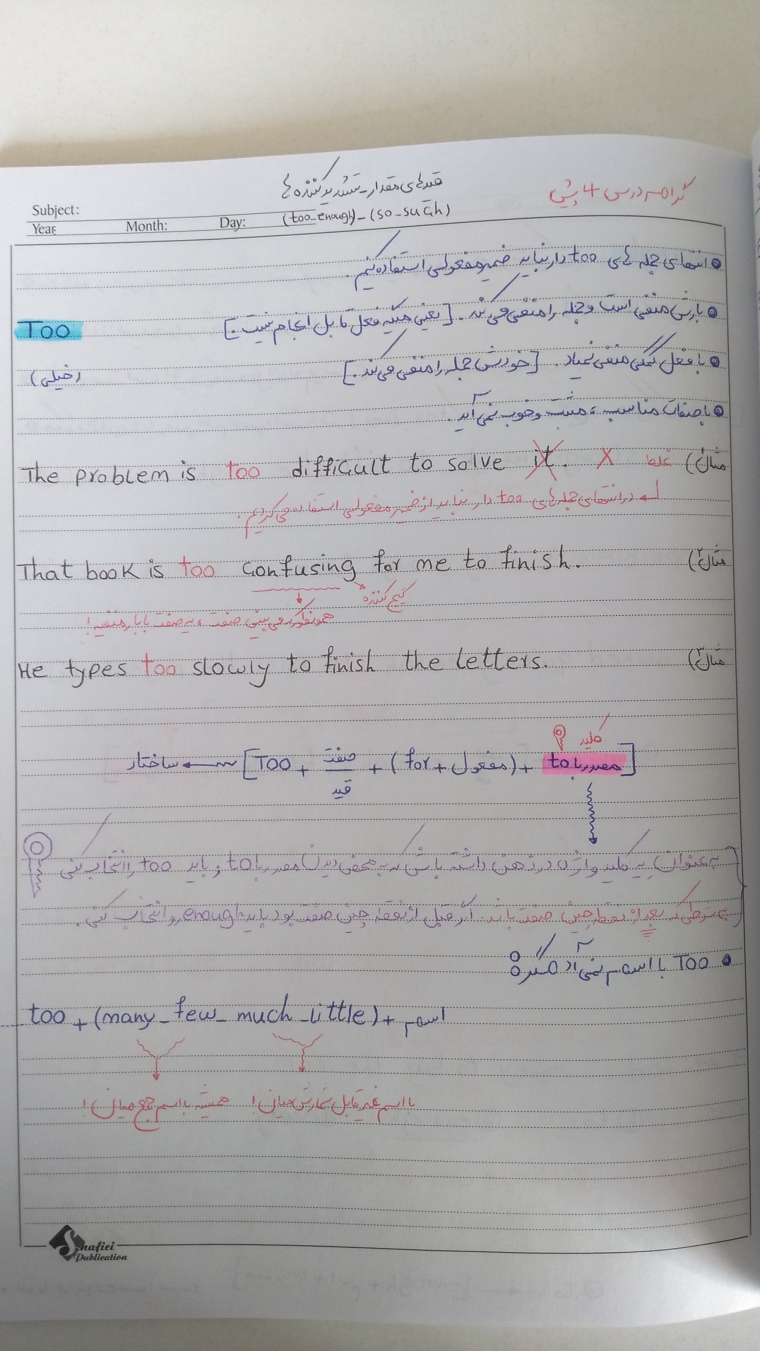 گرامر درس 4 پیش
قیدهای مقدار - تشدید کننده ها
(too_enough) - (so_such)
Subject:
Year: Month: Day:
• انتهای جمله های too دار نباید ضمیر مفعولی استفاده کنیم.
• بارش منفی است و جمله را منفی می کند. [یعنی میگه فعل قابل انجام نیست.]
Too
• با فعل کمکی منفی نمیاد. [خودش جمله را منفی می کند.]
(خیلی)
• با صفات مناسب، مثبت و خوب نمی آید.
مثال) The problem is too difficult to solve it. X غلط
در انتهای جمله های too دار نباید از ضمیر مفعولی استفاده می کردیم.
مثال۲) That book is too confusing for me to finish.
گیج کننده
همونطور که می بینی صفت، یه صفت با بار منفیه!
مثال۳) He types too slowly to finish the letters.
کلید
ساختار [Too + صفت / قید + (for + مفعول) + مصدر با to]
به عنوان یه کلید واژه در ذهن داشته باش که به محض دیدن مصدر با to، باید too را انتخاب کنی
به شرطی که بعد از نقطه چین صفت باشد. اگر قبل از نقطه چین صفت بود باید enough رو انتخاب کنی.
• Too با اسم نمی آد مگر:
too + (many _ few _ much _ little) + اسم
همیشه با اسم جمع میان! با اسم غیرقابل شمارش میان!
Shafiei
Publication